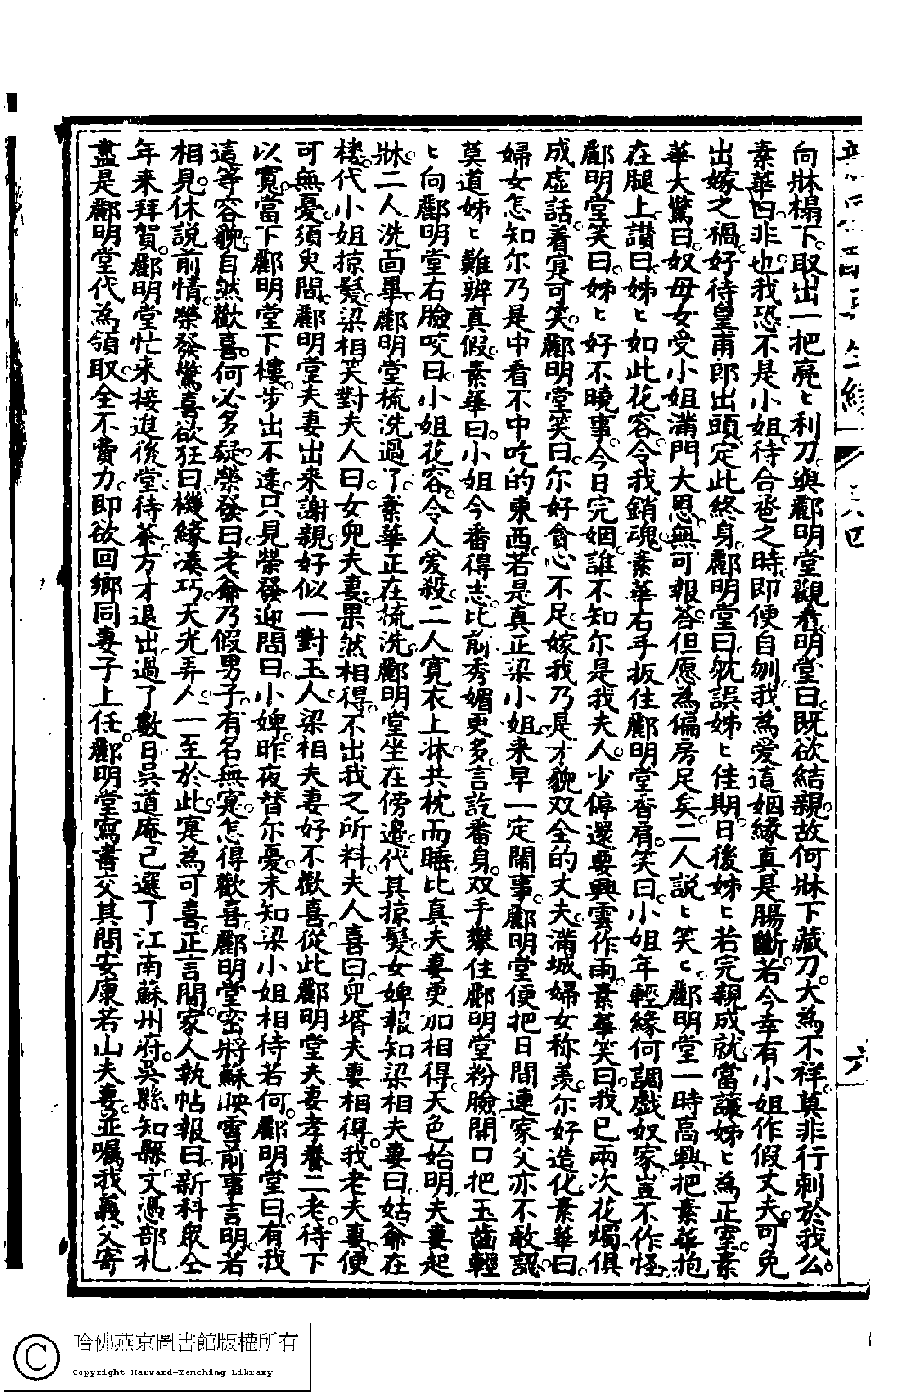 向牀榻下。取出一把亮〻利刀與酈明堂觀看明堂曰旣欲結親。故何牀下藏刀。大為不祥。莫非行刺於我么。
素華曰。非也。我恐不是小姐。待合卺之時。即便自刎。我為愛這姻緣真是腸斷。若今幸有小姐作假丈夫。可免
出嫁之禍。好待皇甫郎出頭定此終身。酈明堂曰。躭誤姊〻佳期。日後姊〻若完親成就。當讓姊〻為正室。素
華大驚曰。奴母女受小姐滿門大恩。無可報答。但愿為偏房足矣。二人說〻笑〻。酈明堂一時高興。把素華抱
在腿上讃曰。姊〻如此花容。令我銷魂。素華右手扳住酈明堂香肩。笑曰。小姐年輕緣何調戲奴家。豈不作怪。
酈明堂笑曰。姊〻好不曉事。今日完姻。誰不知尔是我夫人。少停還要興雲作雨。素華笑曰。我已兩次花燭俱
成虛話。着寔可笑。酈明堂笑曰。尔好貪心不足。嫁我乃是才貌双全的丈夫。滿城婦女称羨。尔好造化。素華曰
婦女怎知尔乃是中看不中吃的東西。若是真正梁小姐。來早一定閙事。酈明堂便把日間連家父亦不敢認。
莫道姊〻難辨真假。素華曰。小姐今番得志。比前秀媚更多。言訖番身。双手攀住酈明堂粉臉。開口把玉齒輕
〻向酈明堂右臉咬曰。小姐花容令人愛殺。二人寬衣上牀共枕而睡。比真夫妻更加相得。天色始明。夫妻起
牀。二人洗面畢。酈明堂梳洗過了。素華正在梳洗。酈明堂坐在傍邊。代其掠髮。女婢報知梁相夫妻曰。姑爺在
樓。代小姐掠髮。梁相笑對夫人曰。女兒夫妻果然相得。不出我之所料。夫人喜曰。兒壻夫妻相得。我老夫妻便
可無憂。須臾間。酈明堂夫妻出來謝親。好似一對玉人。梁相夫妻好不歡喜。從此酈明堂夫妻孝養二老。待下
以寬。當下酈明堂下樓。步出不遠。只見榮發迎問曰。小婢昨夜替尔憂。未知梁小姐相待若何。酈明堂曰。有我
這等容貌。自然歡喜。何必多疑。榮發曰。老爺乃假男子。有名無寔。怎得歡喜。酈明堂密將蘇映雪前事言明。若
相見。休說前情。榮發驚喜欲狂曰。機緣湊巧。天光弄人。一至於此。寔為可喜。正言間家人執帖報曰。新科眾仝
年来拜賀。酈明堂忙来接進後堂待茶。方才退出。過了數日。吳道庵已選了江南蘇州府。吳縣知縣。文憑部札
盡是酈明堂代為領取。全不費力。即欲回鄉同妻子上任。酈明堂寫書父其問安康若山夫妻。並囑我義父寄
六
哈佛燕京圖書館版權所有
Copyright Harvard-Yenching Library